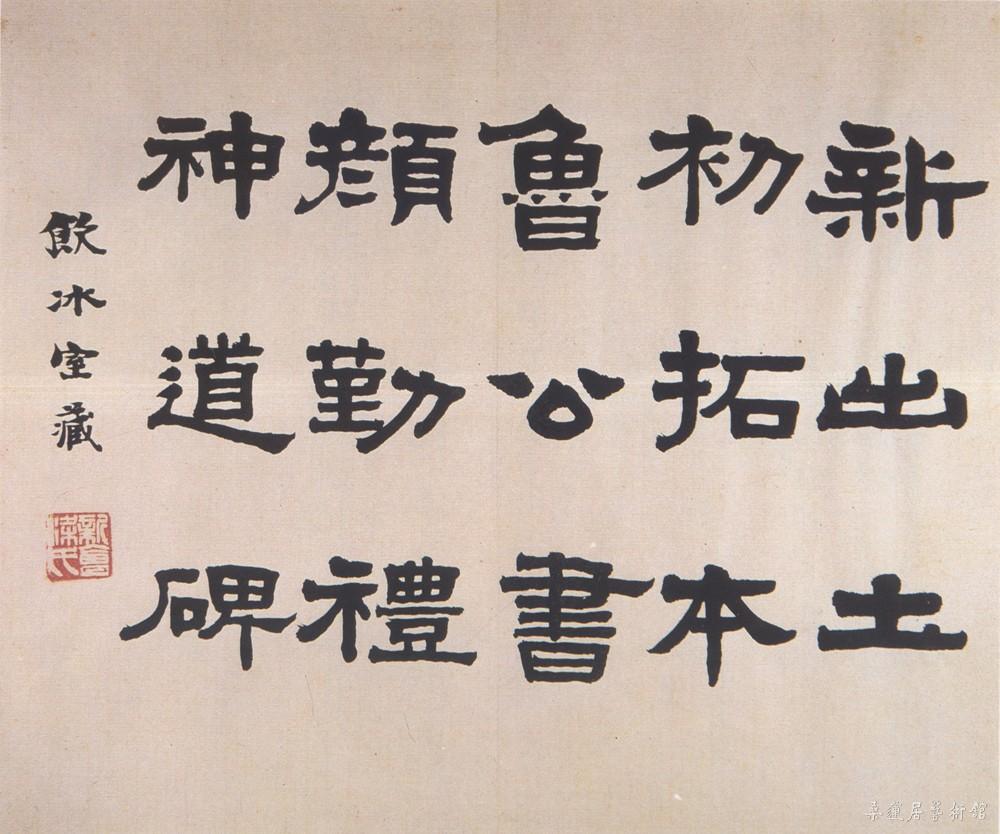 新出土
初拓本
魯公書
顏勤禮
神道碑
飲冰室藏
新會梁氏
桑蓮居藝術館